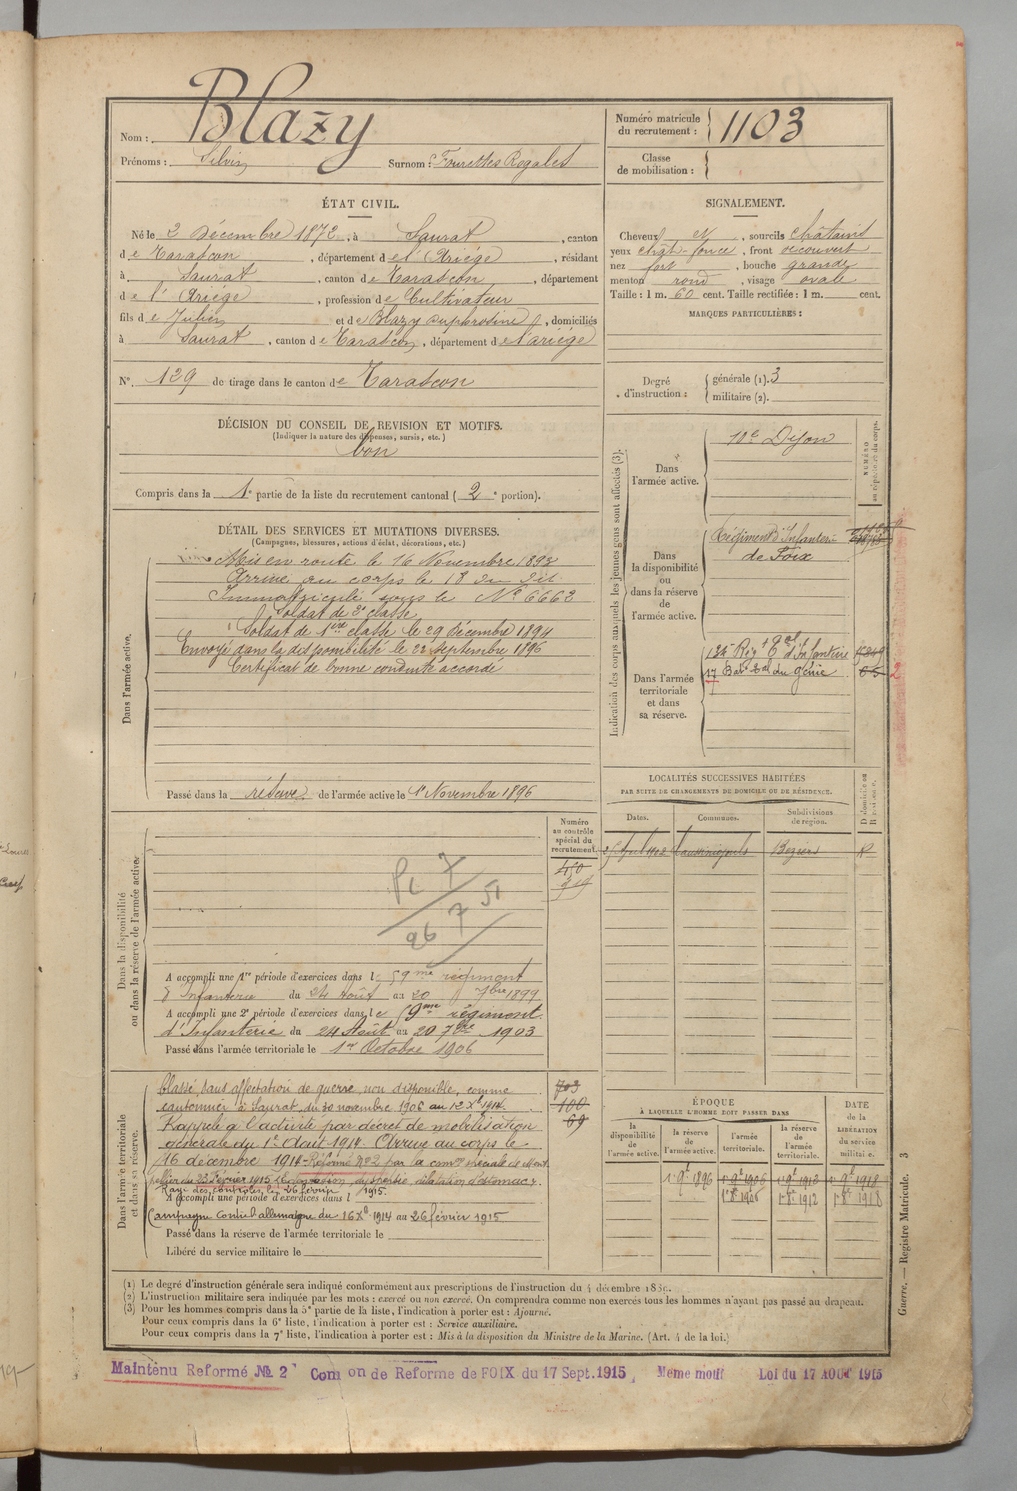 Nom : Blazy
Prénoms : Silvin Surnom : Fourettes Rogalet
Numéro matricule
du recrutement : 1103
Classe
de mobilisation :
ÉTAT CIVIL.
Né le 2 Décembre 1872, à Saurat, canton
de Tarascon, département de l'Ariége, résidant
à Saurat, canton de Tarascon, département
de l'Ariége, profession de Cultivateur
fils de Julien et de Blazy Euphrosine, domiciliés
à Saurat, canton de Tarascon, département de l'ariége
N° 129 de tirage dans le canton de Tarascon
SIGNALEMENT.
Cheveux et, sourcils châtains
yeux chat. foncé, front découvert
nez fort, bouche grande
menton rond, visage ovale
Taille : 1 m. 60 cent. Taille rectifiée : 1 m. cent.
MARQUES PARTICULIÈRES :
Degré
d'instruction :
générale (1). 3
militaire (2).
DÉCISION DU CONSEIL DE REVISION ET MOTIFS.
(Indiquer la nature des dispenses, sursis, etc.)
bon
Compris dans la 1e partie de la liste du recrutement cantonal (2e portion).
DÉTAIL DES SERVICES ET MUTATIONS DIVERSES.
(Campagnes, blessures, actions d'éclat, décorations, etc.)
Dans l'armée active.
Mis en route le 16 Novembre 1893
Arrivé au corps le 18 du dit
Immatriculé sous le N° 6662
Soldat de 2e classe
Soldat de 1ère classe le 29 Décembre 1894
Envoyé dans la disponibilité le 22 septembre 1896
Certificat de bonne conduite accordé
Passé dans la réserve de l'armée active le 1er Novembre 1896
Indication des corps auxquels les jeunes gens sont affectés (3).
NUMÉRO
au répertoire du corps.
Dans
l'armée active.
10e Dijon
Dans
la disponibilité
ou
dans la réserve
de
l'armée active.
Régiment d'Infanterie
de Foix
Dans l'armée
territoriale
et dans
sa réserve.
134e Régt Tal d'Infanterie
17 Bat. Tal du génie
LOCALITÉS SUCCESSIVES HABITÉES
PAR SUITE DE CHANGEMENTS DE DOMICILE OU DE RÉSIDENCE.
Dates.
Communes.
Subdivisions
de région.
D. domicile ou
R. résidence.
Avril 1902 Béziers R
Dans la disponibilité
ou dans la réserve de l'armée active.
Numéro
au contrôle
spécial du
recrutement.
450
Pc 7
26 7 51
A accompli une 1re période d'exercices dans le 59me régiment
d'Infanterie du 24 Août au 20 7bre 1899
A accompli une 2e période d'exercices dans le 59me régiment
d'Infanterie du 24 Août au 20 7bre 1903
Passé dans l'armée territoriale le 1er Octobre 1906
Dans l'armée territoriale
et dans sa réserve.
Classé sans affectation de guerre, non disponible, comme
cantonnier à Saurat, du 30 novembre 1906 au 12 Xb 1914.
Rappelé à l'activité par décret de mobilisation
générale du 1er Août 1914. Arrivé au corps le
16 décembre 1914 - Réformé N°2 par la comon spéciale de Mont
pellier du 23 Février 1915 dyspepsie, dilatation d'estomac.
Rayé des contrôles le 26 février 1915.
A accompli une période d'exercices dans l
Campagne contre l'allemagne du 16 Xb 1914 au 26 février 1915
Passé dans la réserve de l'armée territoriale le
Libéré du service militaire le
703
100
69
ÉPOQUE
À LAQUELLE L'HOMME DOIT PASSER DANS
DATE
de la
LIBÉRATION
du service
militaire.
la
disponibilité
de
l'armée active.
la réserve
de
l'armée active.
l'armée
territoriale.
la réserve
de
l'armée
territoriale.
1 9b 1896 1 9b 1906 1 9b 1913 1 9b 1918
1 8b 1906 1 8b 1912 1 8b 1918
(1) Le degré d'instruction générale sera indiqué conformément aux prescriptions de l'instruction du 4 décembre 1889.
(2) L'instruction militaire sera indiquée par les mots : exercé ou non exercé. On comprendra comme non exercés tous les hommes n'ayant pas passé au drapeau.
(3) Pour les hommes compris dans la 5e partie de la liste, l'indication à porter est : Ajourné.
Pour ceux compris dans la 6e liste, l'indication à porter est : Service auxiliaire.
Pour ceux compris dans la 7e liste, l'indication à porter est : Mis à la disposition du Ministre de la Marine. (Art. 4 de la loi.)
Guerre. — Registre Matricule. 3
Maintenu Reformé № 2 Com on de Reforme de FOIX du 17 Sept. 1915 Même motif Loi du 17 AOUT 1915